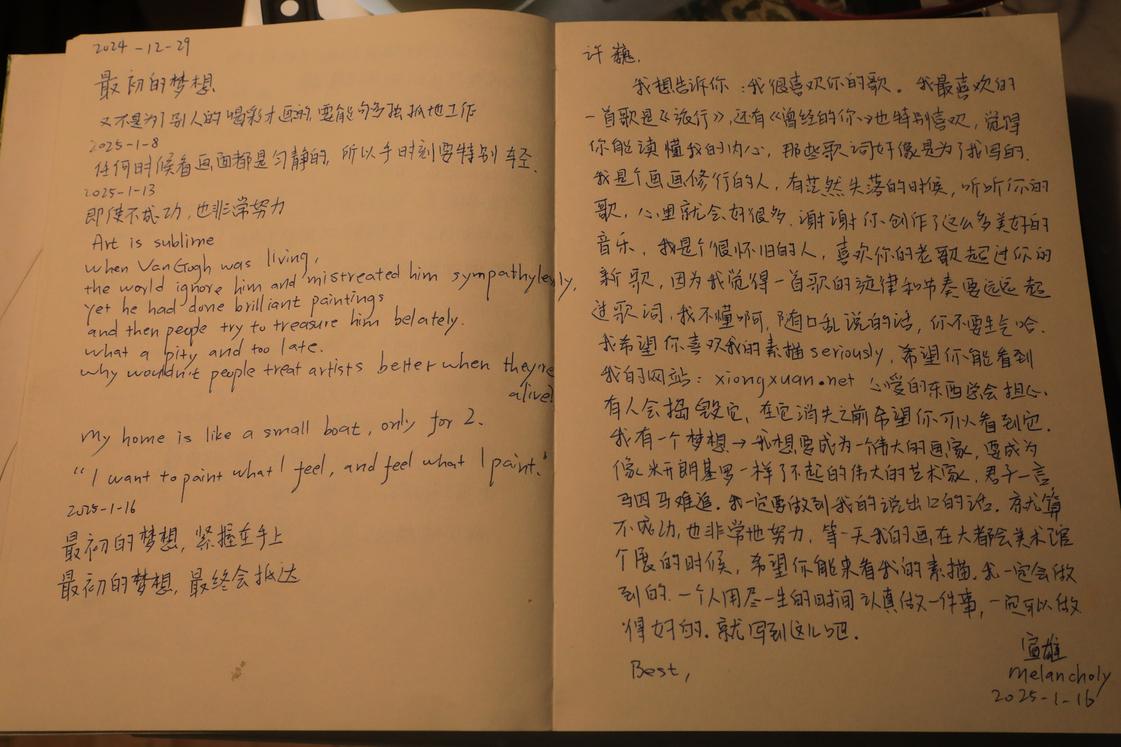 2024-12-29
最初的梦想
又不是为了别人的喝彩才画的,要能够多独孤地工作
2025-1-8
任何时候看画面都是匀静的,所以手时刻要特别轻.
2025-1-13
即使不成功,也非常努力
Art is sublime
when Van Gogh was living,
the world ignore him and mistreated him sympathylessly,
yet he had done brilliant paintings
and then people try to treasure him belately.
what a pity and too late.
why wouldn't people treat artists better when they're
alive?
My home is like a small boat, only for 2.
"I want to paint what I feel, and feel what I paint."
2025-1-16
最初的梦想,紧握在手上
最初的梦想,最终会抵达
许巍.
我想告诉你:我很喜欢你的歌。我最喜欢的
一首歌是《旅行》,还有《曾经的你》也特别喜欢,觉得
你能读懂我的内心,那些歌词好像是为了我写的.
我是个画画修行的人,有茫然失落的时候,听听你的
歌,心里就会好很多.谢谢你创作了这么多美好的
音乐,我是个很怀旧的人,喜欢你的老歌超过你的
新歌,因为我觉得一首歌的旋律和节奏要远远超
过歌词,我不懂啊,随口乱说的话,你不要生气哈.
我希望你喜欢我的素描 seriously,希望你能看到
我的网站:xiongxuan.net 心爱的东西总会担心,
有人会捣毁它,在它消失之前希望你可以看到它.
我有一个梦想→我想要成为一个伟大的画家,要成为
像米开朗基罗一样了不起的伟大的艺术家,君子一言
马四马难追.我一定要做到我的说出口的话.就算
不成功,也非常地努力,等一天我的画在大都会美术馆
个展的时候,希望你能来看我的素描.我一定会做
到的.一个人用尽一生的时间认真做一件事,一定可以做
得好的.就写到这儿吧.
Best,
宣雄
melancholy
2025-1-16